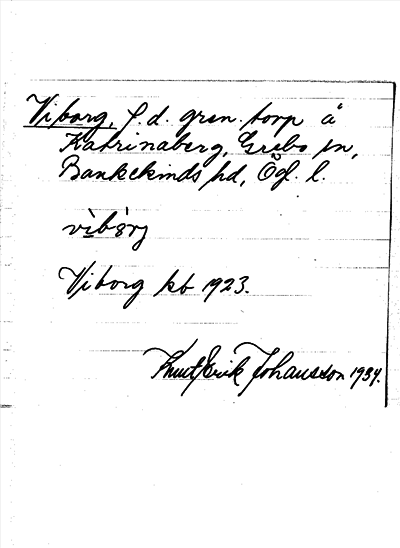 Viborg, f. d. gren. torp å
Katrinaberg, Grebo sn,
Bankekinds hd, Ögl. l.
vìbòrj
Viborg kb 1923.
Knut Erik Johansson 1934.